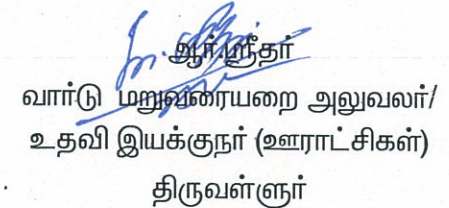 ஆர்.ஸ்ரீதர்
வார்டு மறுவரையறை அலுவலர்/
உதவி இயக்குநர் (ஊராட்சிகள்)
திருவள்ளுர்